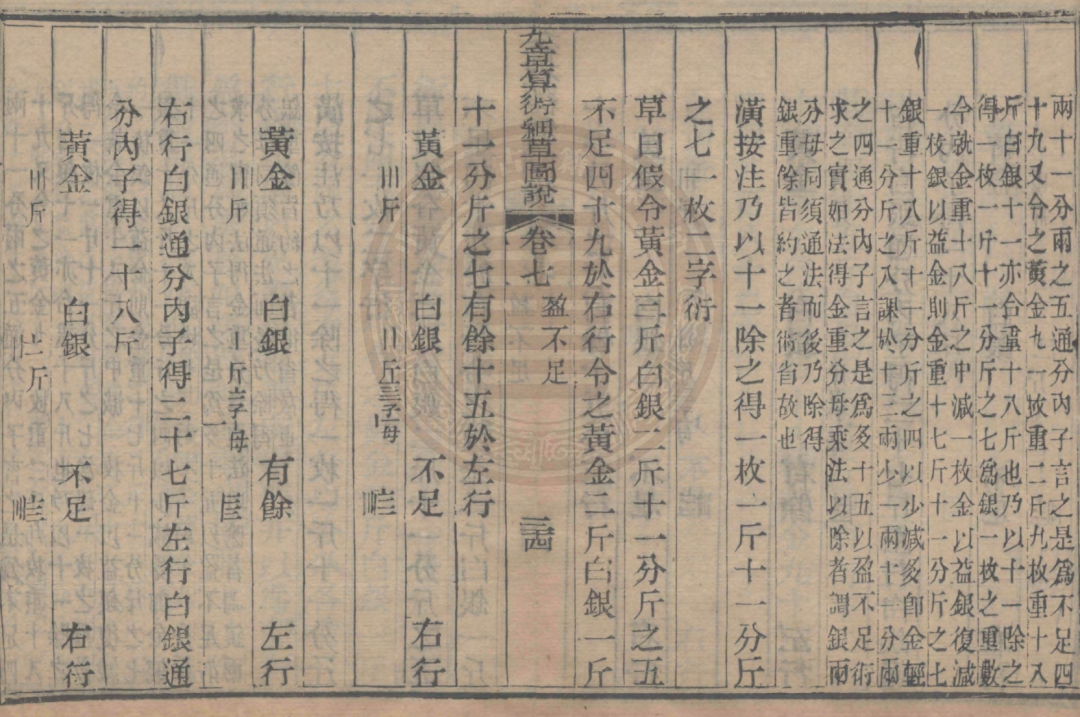 兩十一分兩之五通分內子言之是爲不足四
十九又令之黃金九一枚重二斤九枚重十八
斤白銀十一亦合重十八斤也乃以十一除之
得一枚一斤十一分斤之七爲銀一枚之重數
今就金重十八斤之中減一枚金以益銀復減
一枚銀以益金則金重十七斤十一分斤之七
銀重十八斤十一分斤之四以少減多卽金輕
十一分斤之八課於十三兩少一兩十一分兩
之四通分內子言之是爲多十五以盈不足術
求之實如法得金重分母乘法以除者謂銀兩
分母同須通法而後乃除得
銀重餘皆約之者術省故也
潢按注乃以十一除之得一枚一斤十一分斤
之七一枚二字衍
草曰假令黃金三斤白銀二斤十一分斤之五
不足四十九於右行令之黃金二斤白銀一斤
九章算術細草圖說 卷七 盈不足 三四
十一分斤之七有餘十五於左行
黃金 白銀 不足 右行
〣斤 〢斤 子 母
黃金 白銀 有餘 左行
〢斤 〡斤 子 母
右行白銀通分內子得二十七斤左行白銀通
分內子得一十八斤
黃金 白銀 不足 右行
〣斤 斤